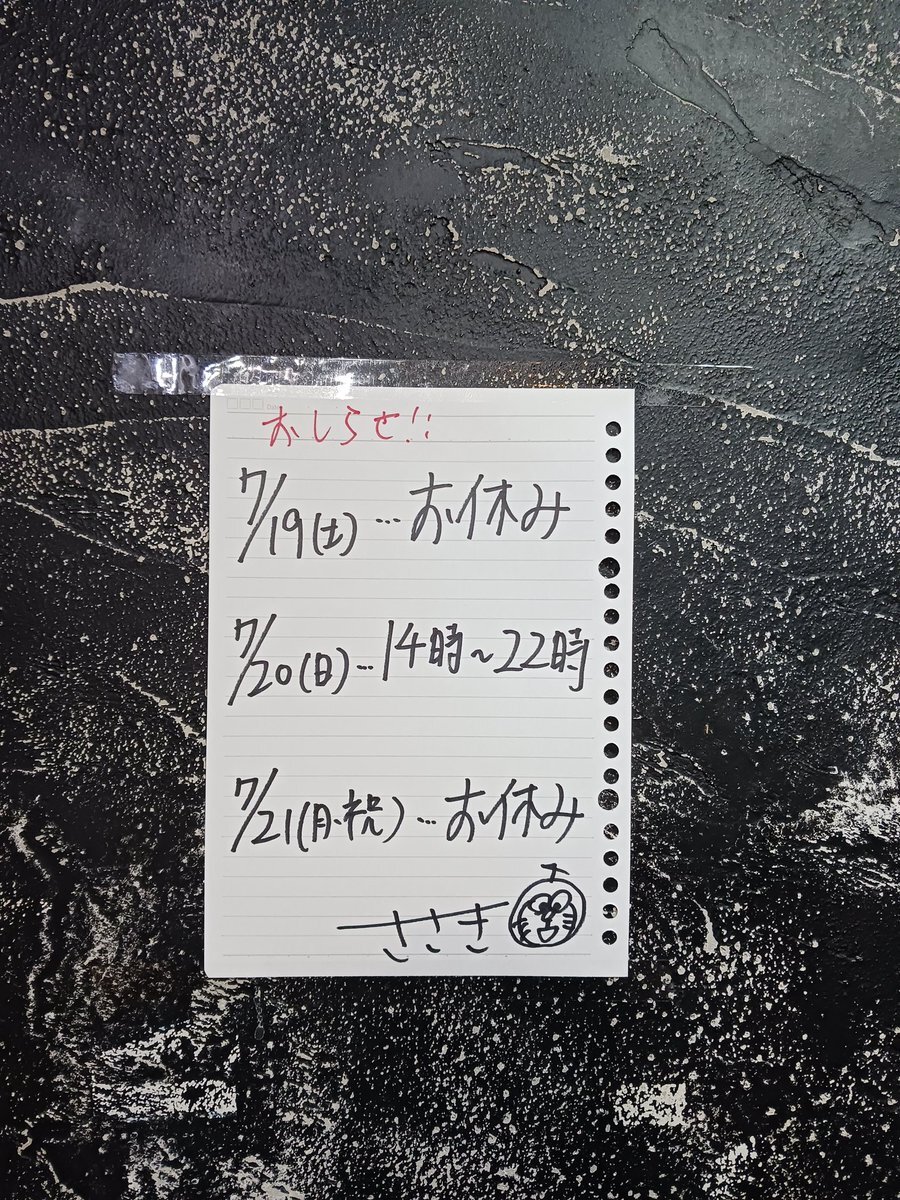 おしらせ!!
7/19(土)…お休み
7/20(日)…14時~22時
7/21(月・祝)…お休み
ささき